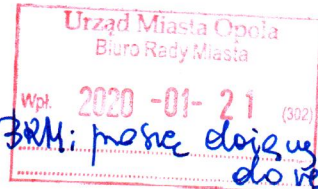 Urząd Miasta Opola
Biuro Rady Miasta
Wpł. 2020 -01- 21 (302)
BRM: proszę
do